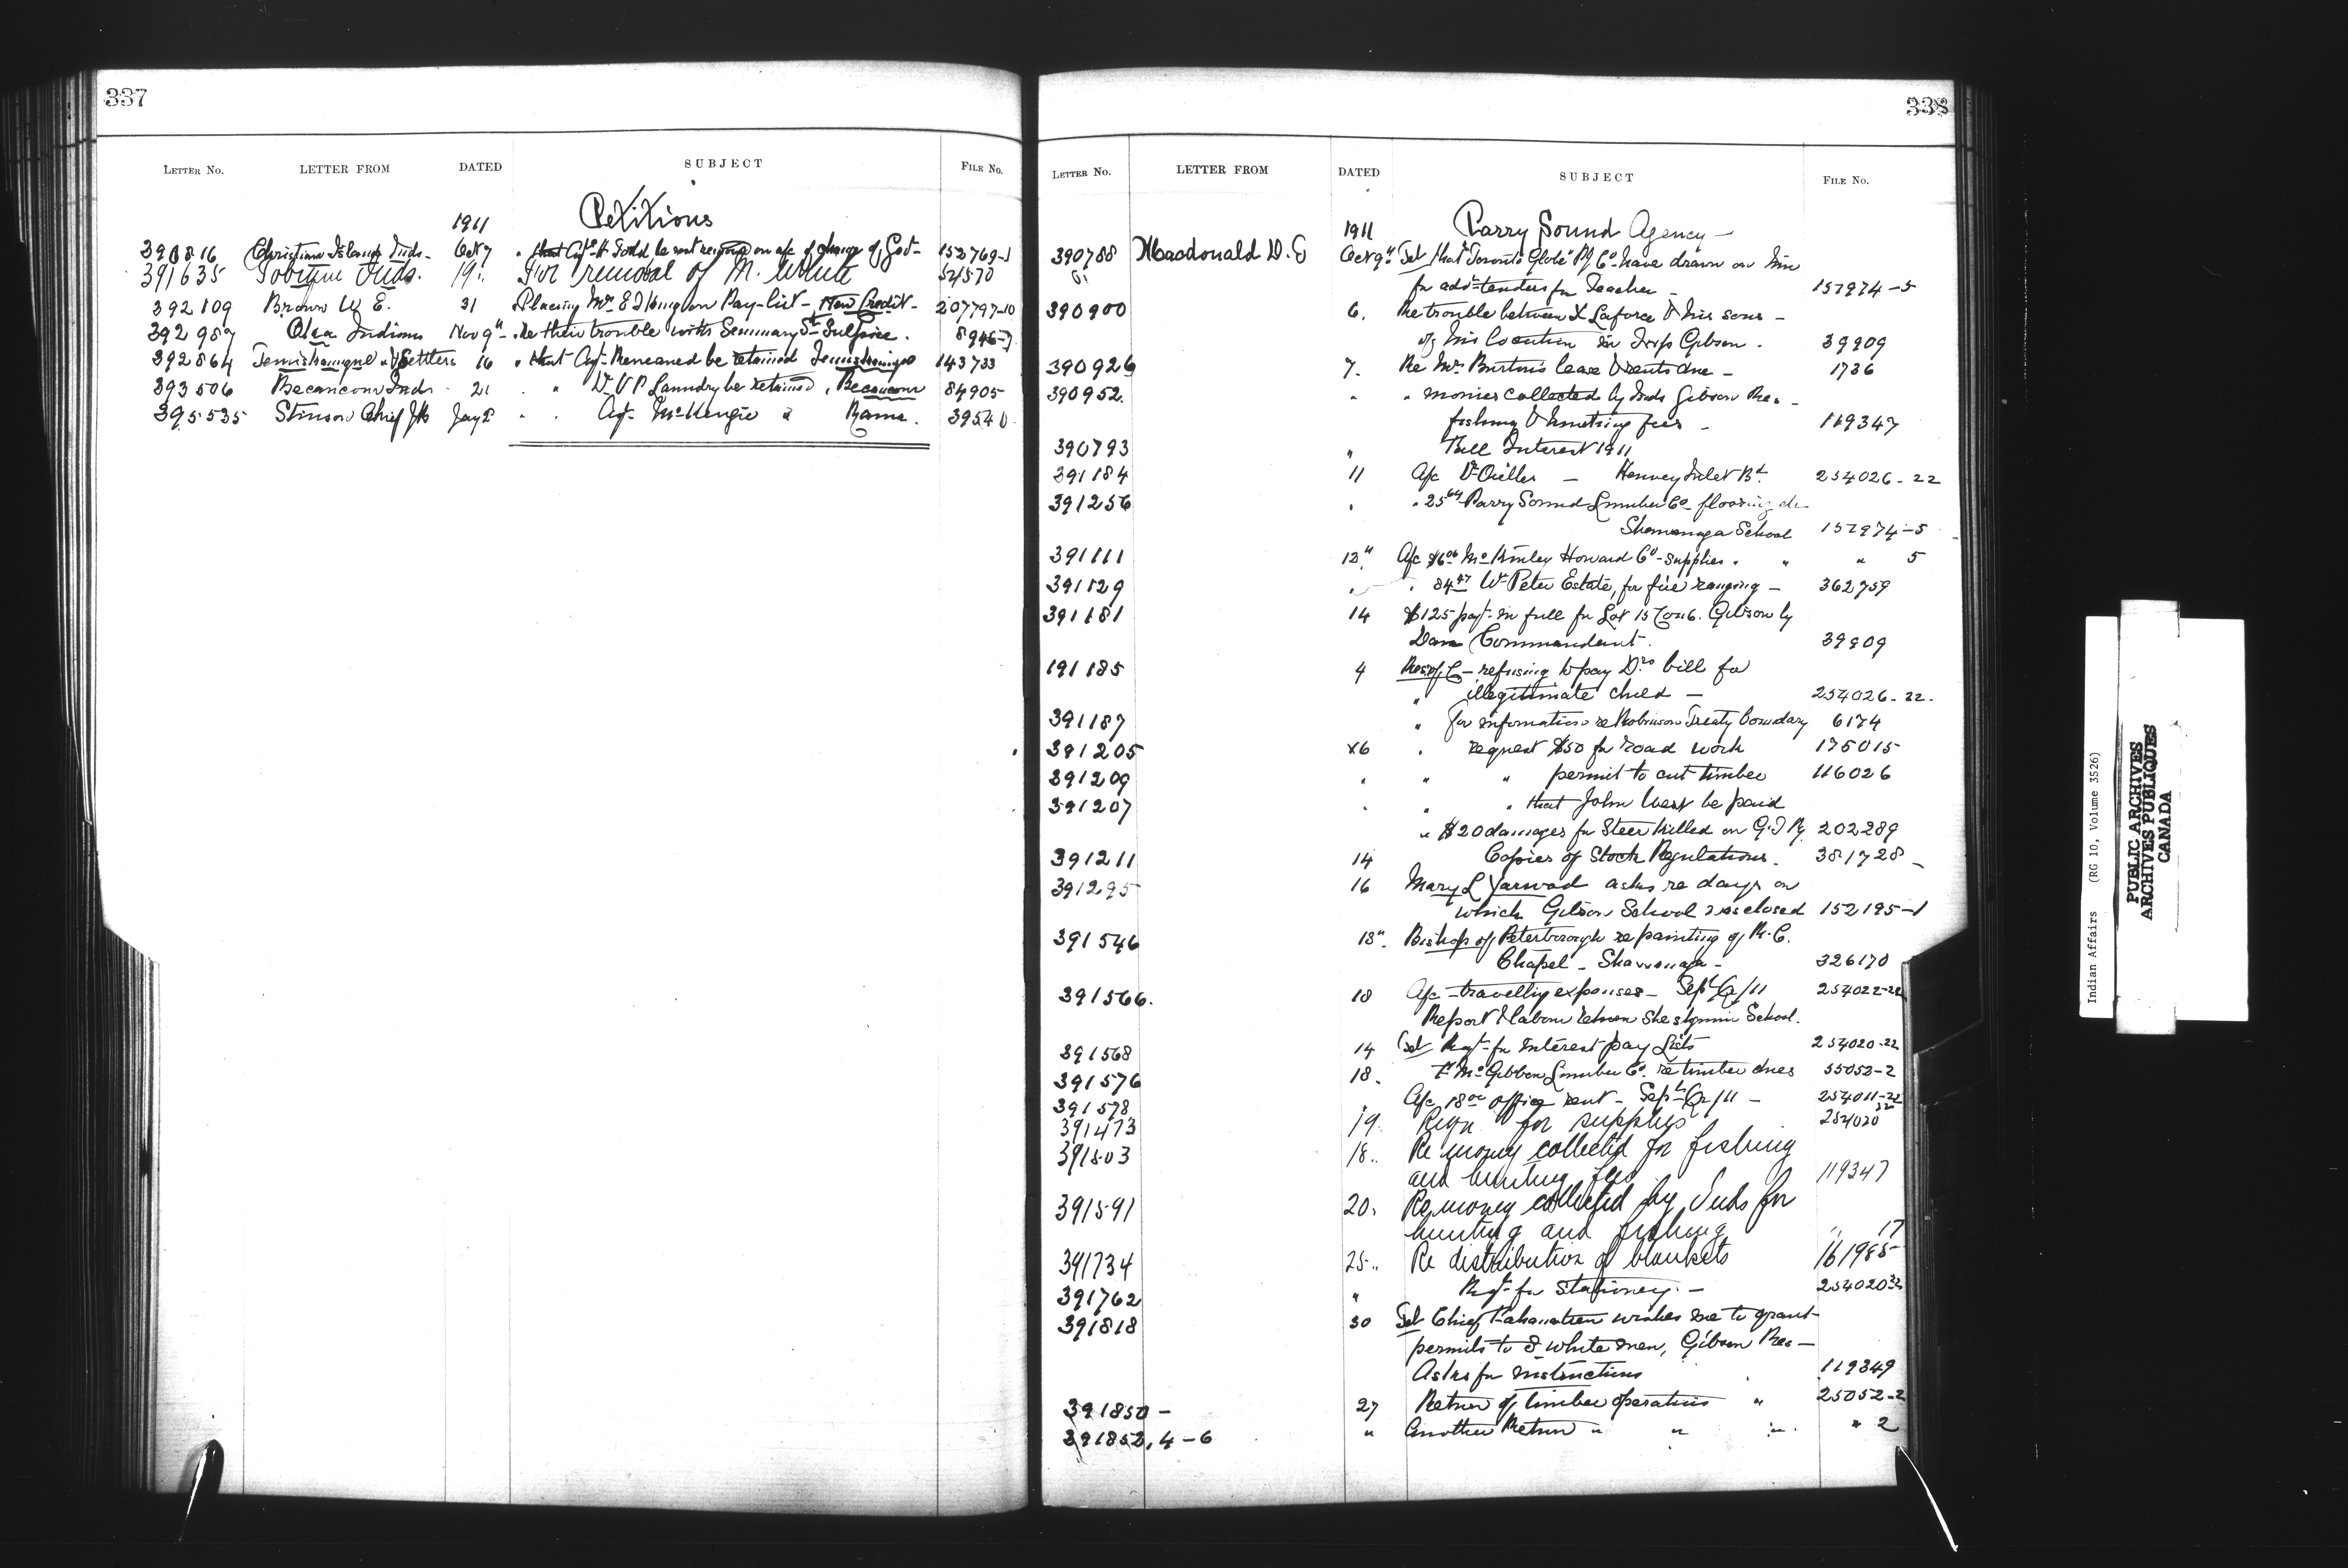 337
LETTER No. LETTER FROM DATED SUBJECT FILE No.
Petitions
1911
390816 Christian Islands Inds. Oct 7 " that Agt. be not removed on a/c of change of Govt- 152769-1
391635 Tobique Inds. 19. For removal of N. White 54570
392109 Brown W E. 31 Placing Mrs E J King on Pay-list - New Credit - 207797-10
392987 Oka Indians Nov 9" Re their trouble with Seminary St Sulpice. 8946-7
392864 Temiskamingue Settlers 16 " that Agt. be retained Temiskaming 143733
393506 Becancour Inds 21 " " Dr. V P Landry be retained, Becancour 84905
395535 Stinson Chief Jos Jany 2 " " Agt. McKenzie " Rama. 39540
338
LETTER No. LETTER FROM DATED SUBJECT FILE No.
1911 Parry Sound Agency -
390788 Macdonald D. G Oct 9" Tel that "Toronto Globe" Pg Co- have drawn on him
for advt- tenders for Teacher - 157974-5
390900 6. Re trouble between L Laforce & his sons -
of his location in Twp Gibson. 39909
390926 7. Re Mr. Burton's lease & rents due - 1736
390952. " " monies collected by Inds Gibson Res. -
fishing & hunting fees - 119347
390793 " Bill Interest 1911
391184 11 A/c Dr - Henvey Inlet Bd. 254026-22
391256 " " 25 Parry Sound Lumber Co- flooring
Shawanaga School 157974-5
391111 12" A/c McKinley Howard Co - supplies. " " 5
391129 " " 84 Wm Peter Estate, for fire ranging - 362759
391181 14 $125 payt. in full for Lot 15 Con 6. Gibson by
Dan Commandant. 39909
191185 4 Res. of C - refusing to pay Drs bill for
" illegitimate child - 254026-22.
391187 " for information re Robinson Treaty boundary 6174
391205 16 " request $50 for road work 175015
391209 " " " permit to cut timber 116026
391207 " " " that John West be paid
" $20 damages for Steer killed on G.T Ry 202289
391211 14 Copies of Stock Regulations. 381728 -
391295 16 Mary L Yarwood asks re days on
which Gibson School was closed 152195-1
391546 18". Bishop of Peterborough re painting of R. C.
Chapel - Shawanaga - 326170
391566. 18 A/c - travelling expenses - Sept Qr/11 254022-22
Report & labour return She School.
391568 14 Tel Reqt- for Interest pay Lists 254020-22
391576 18. " McGibbon Lumber Co. re timber dues 55052-2
391578 " A/c 18 office rent - Sept Qr/11 - 254011-22
391473 19. Reqn for supplies 254020 22
391503 18.. Re money collected for fishing
and hunting fees 119347
391591 20. Re money collected by Inds for
hunting and fishing " 17
391734 25.. Re distribution of blankets 161985
391762 " Reqt- for Stationery. - 254020 22
391818 30 Tel Chief wishes me to grant
permits to 2 white men, Gibson Res -
Asks for instructions 119349
391850 - 27 Return of timber operations " 25052-2
391852, 4-6 " Another Return " " " " 2
Indian Affairs (RG 10, Volume 3526)
PUBLIC ARCHIVES
ARCHIVES PUBLIQUES
CANADA